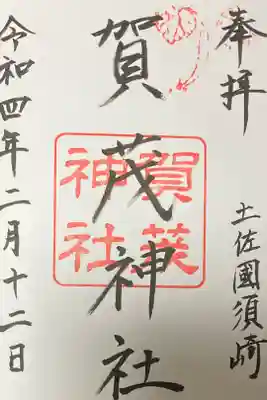 奉拝
土佐國須崎
賀茂神社
賀茂神社
令和四年二月十二日